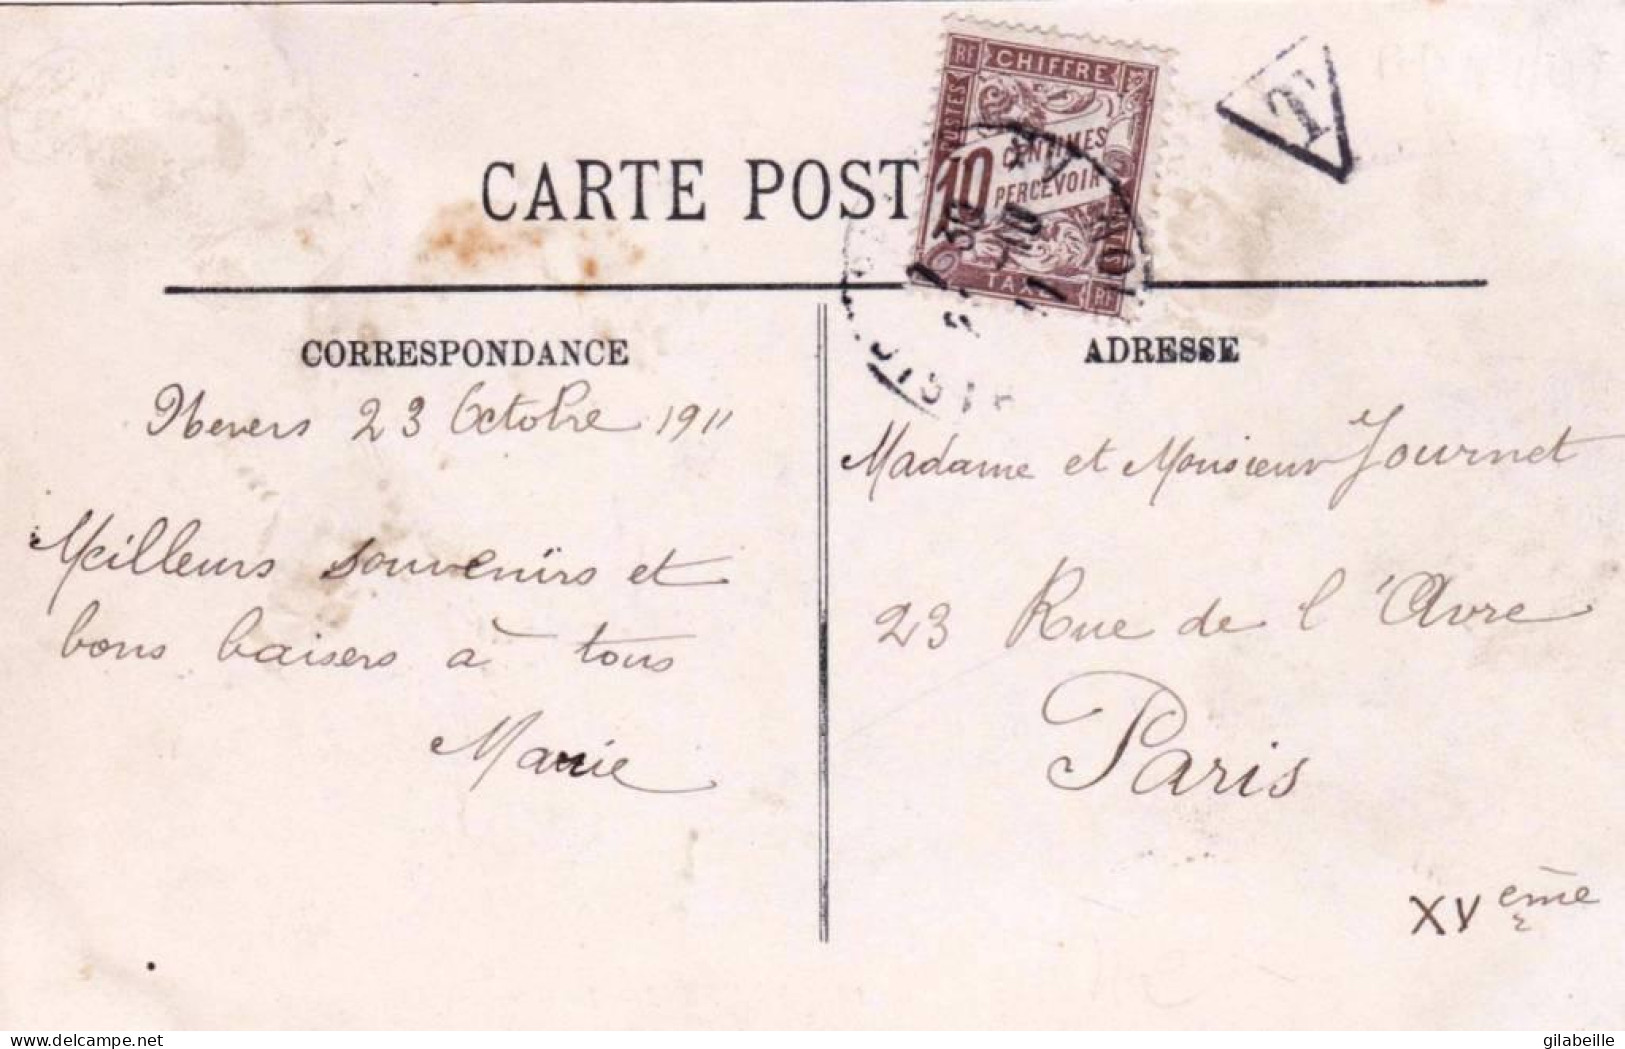 RF CHIFFRE
POSTES
10 CENTIMES
PERCEVOIR
TAXE RF
T
CARTE POST
CORRESPONDANCE
Nevers 23 Octobre 1911
Meilleurs souvenirs et
bons baisers à tous
Marie
ADRESSE
Madame et Monsieur Journet
23 Rue de l'Avre
Paris
XVeme
delcampe.net
gilabeille